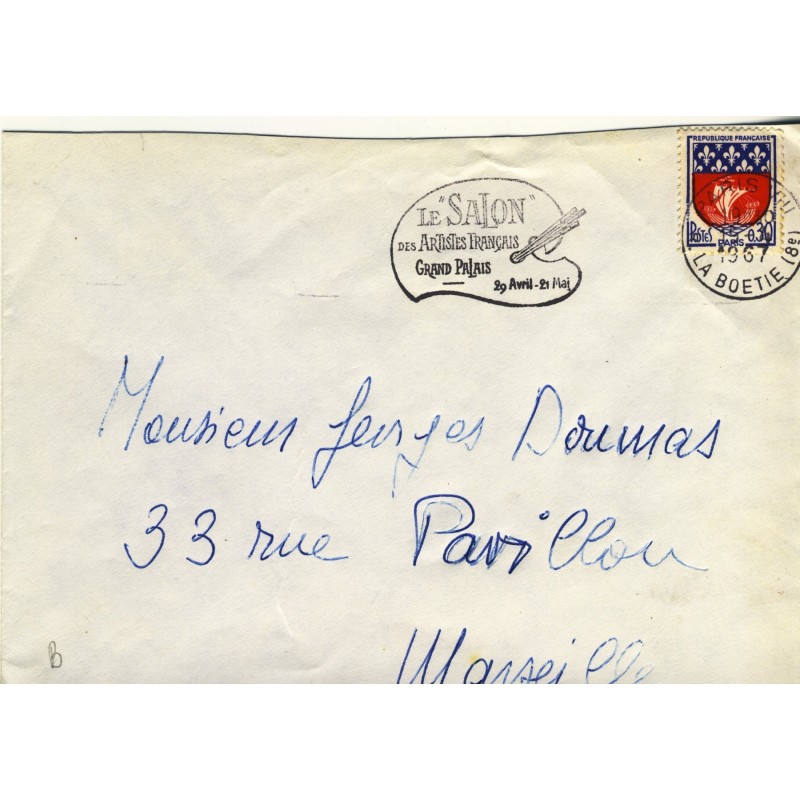 LE "SALON"
DES ARTISTES FRANÇAIS
GRAND PALAIS
29 Avril - 21 Mai
REPUBLIQUE FRANÇAISE
POSTES 0,30
PARIS
PARIS
1967
LA BOETIE (8e)
Monsieur Georges Doumas
33 rue Pavillon
Marseille
B